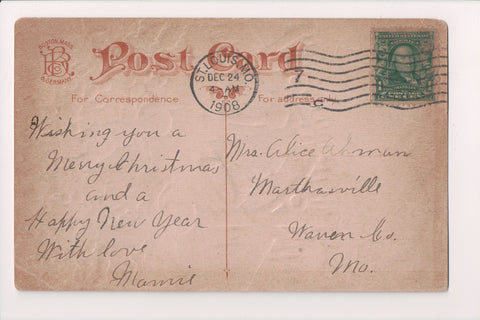 BOSTON, MASS.
& GERMANY
Post Card
For Correspondence
For address only
ST. LOUIS, MO.
DEC 24
AM
1908
7
Wishing you a
Merry Christmas
and a
Happy New Year
With love
Mamie
Mrs. Alice
Marthasville
Warren Co.
Mo.